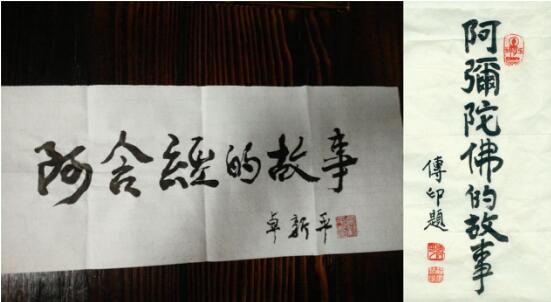 阿含經的故事
卓新平
阿彌陀佛的故事
傳印題